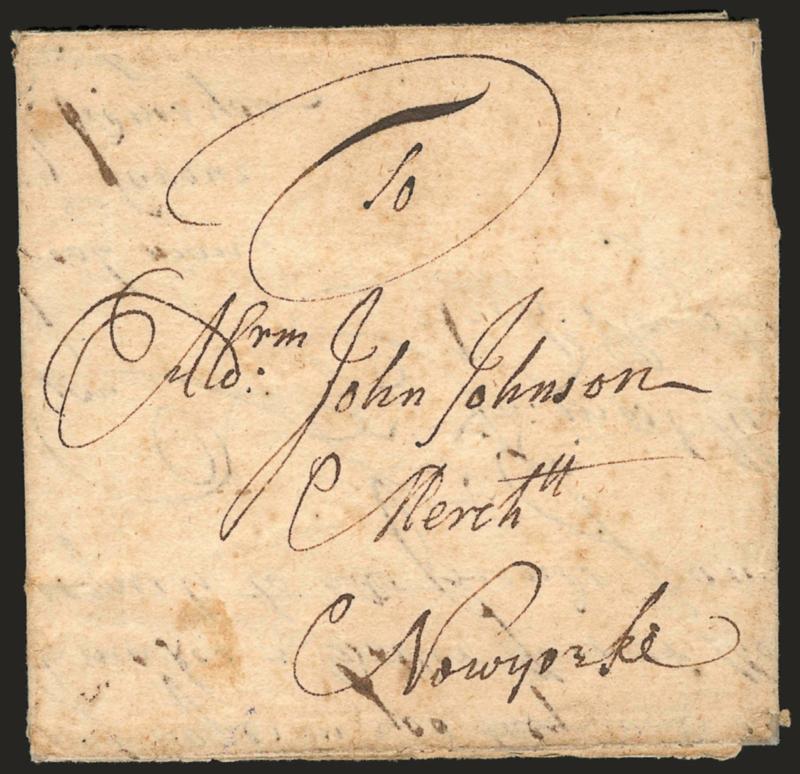 To
Ald:rm John Johnson
Merchtt
Newyorke